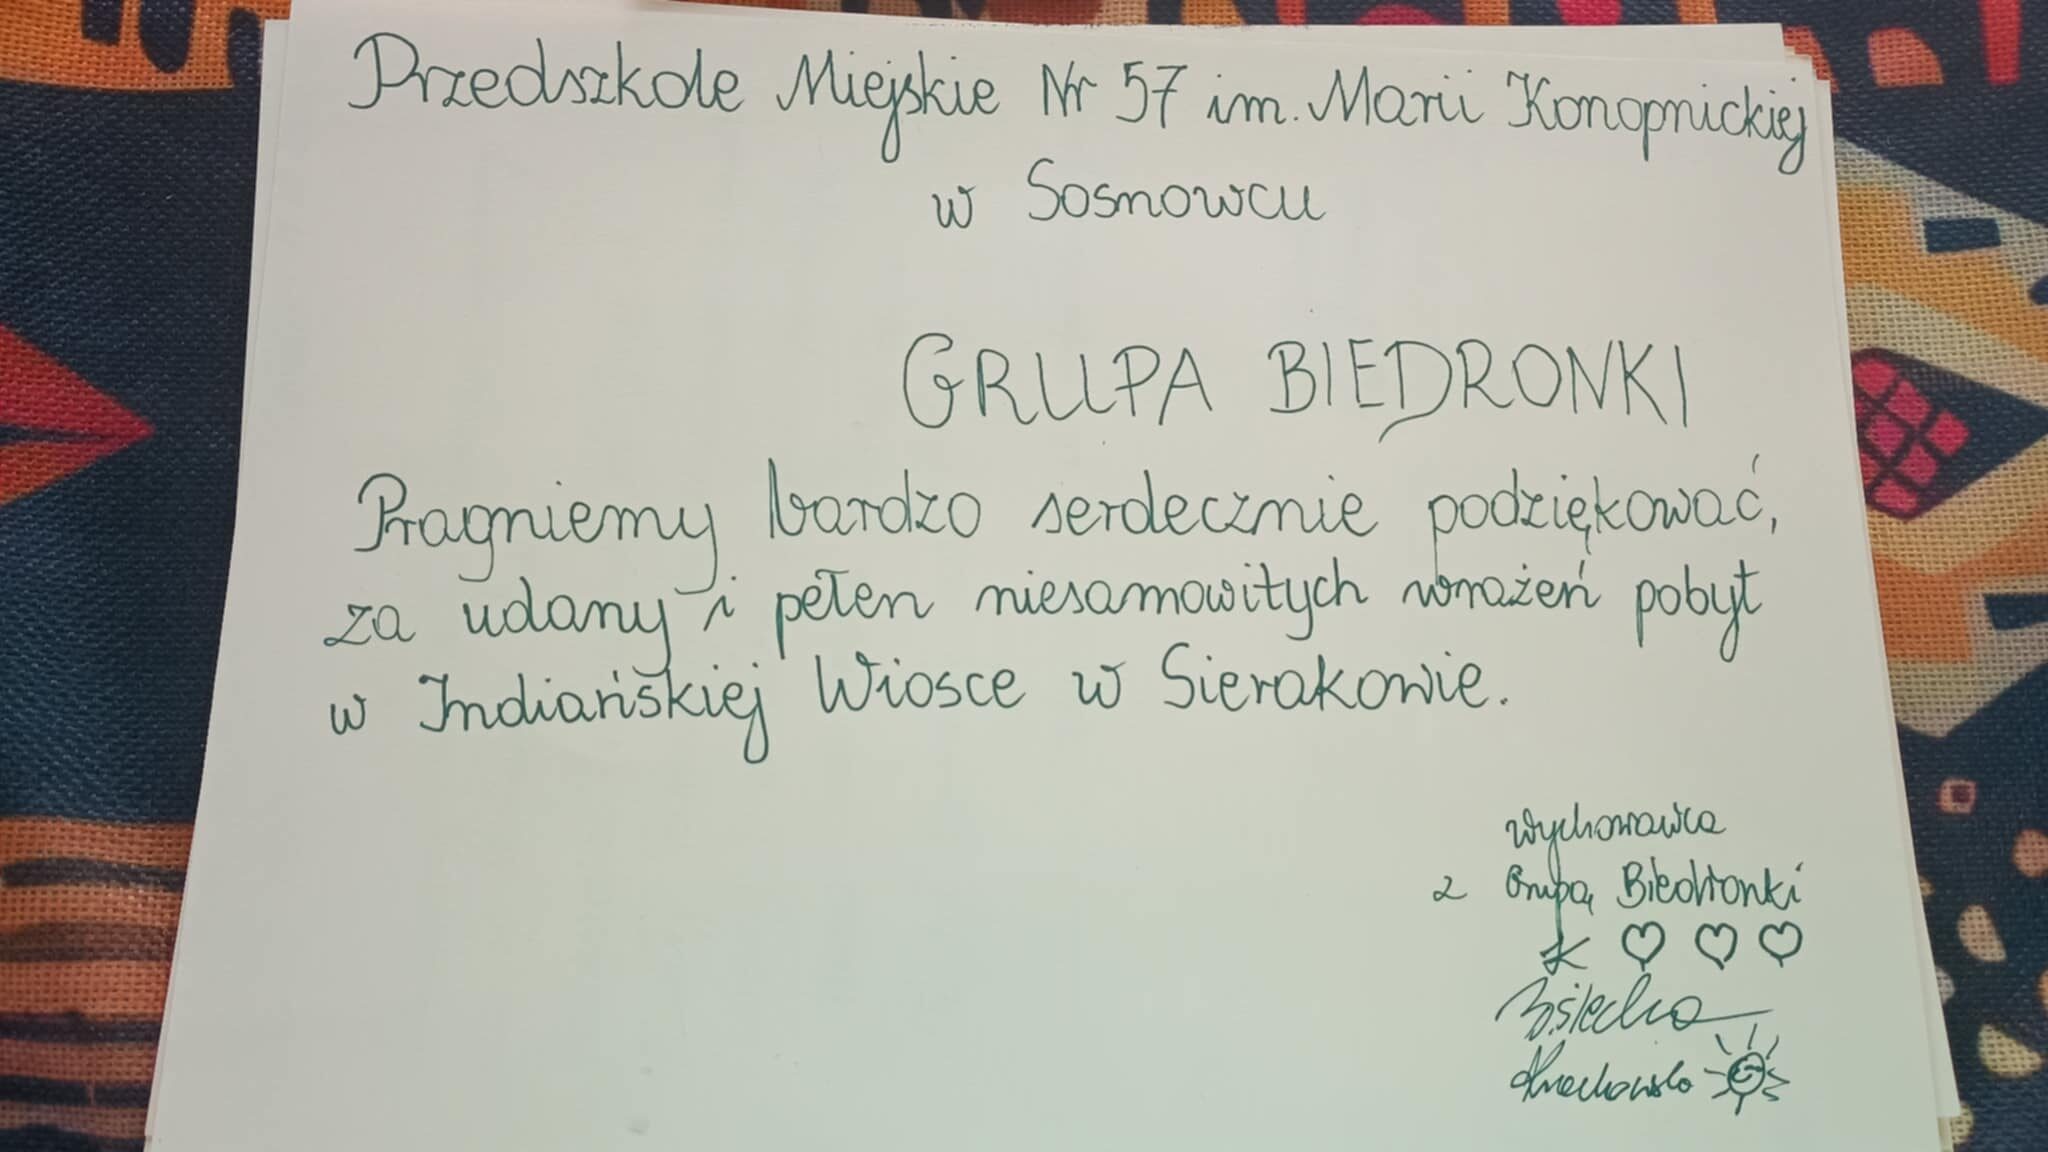 Przedszkole Miejskie Nr 57 im. Marii Konopnickiej
w Sosnowcu
GRUPA BIEDRONKI
Pragniemy bardzo serdecznie podziękować,
za udany i pełen niesamowitych wrażeń pobyt
w Indiańskiej Wiosce w Sierakowie.
wychowawca
z Grupą Biedronki